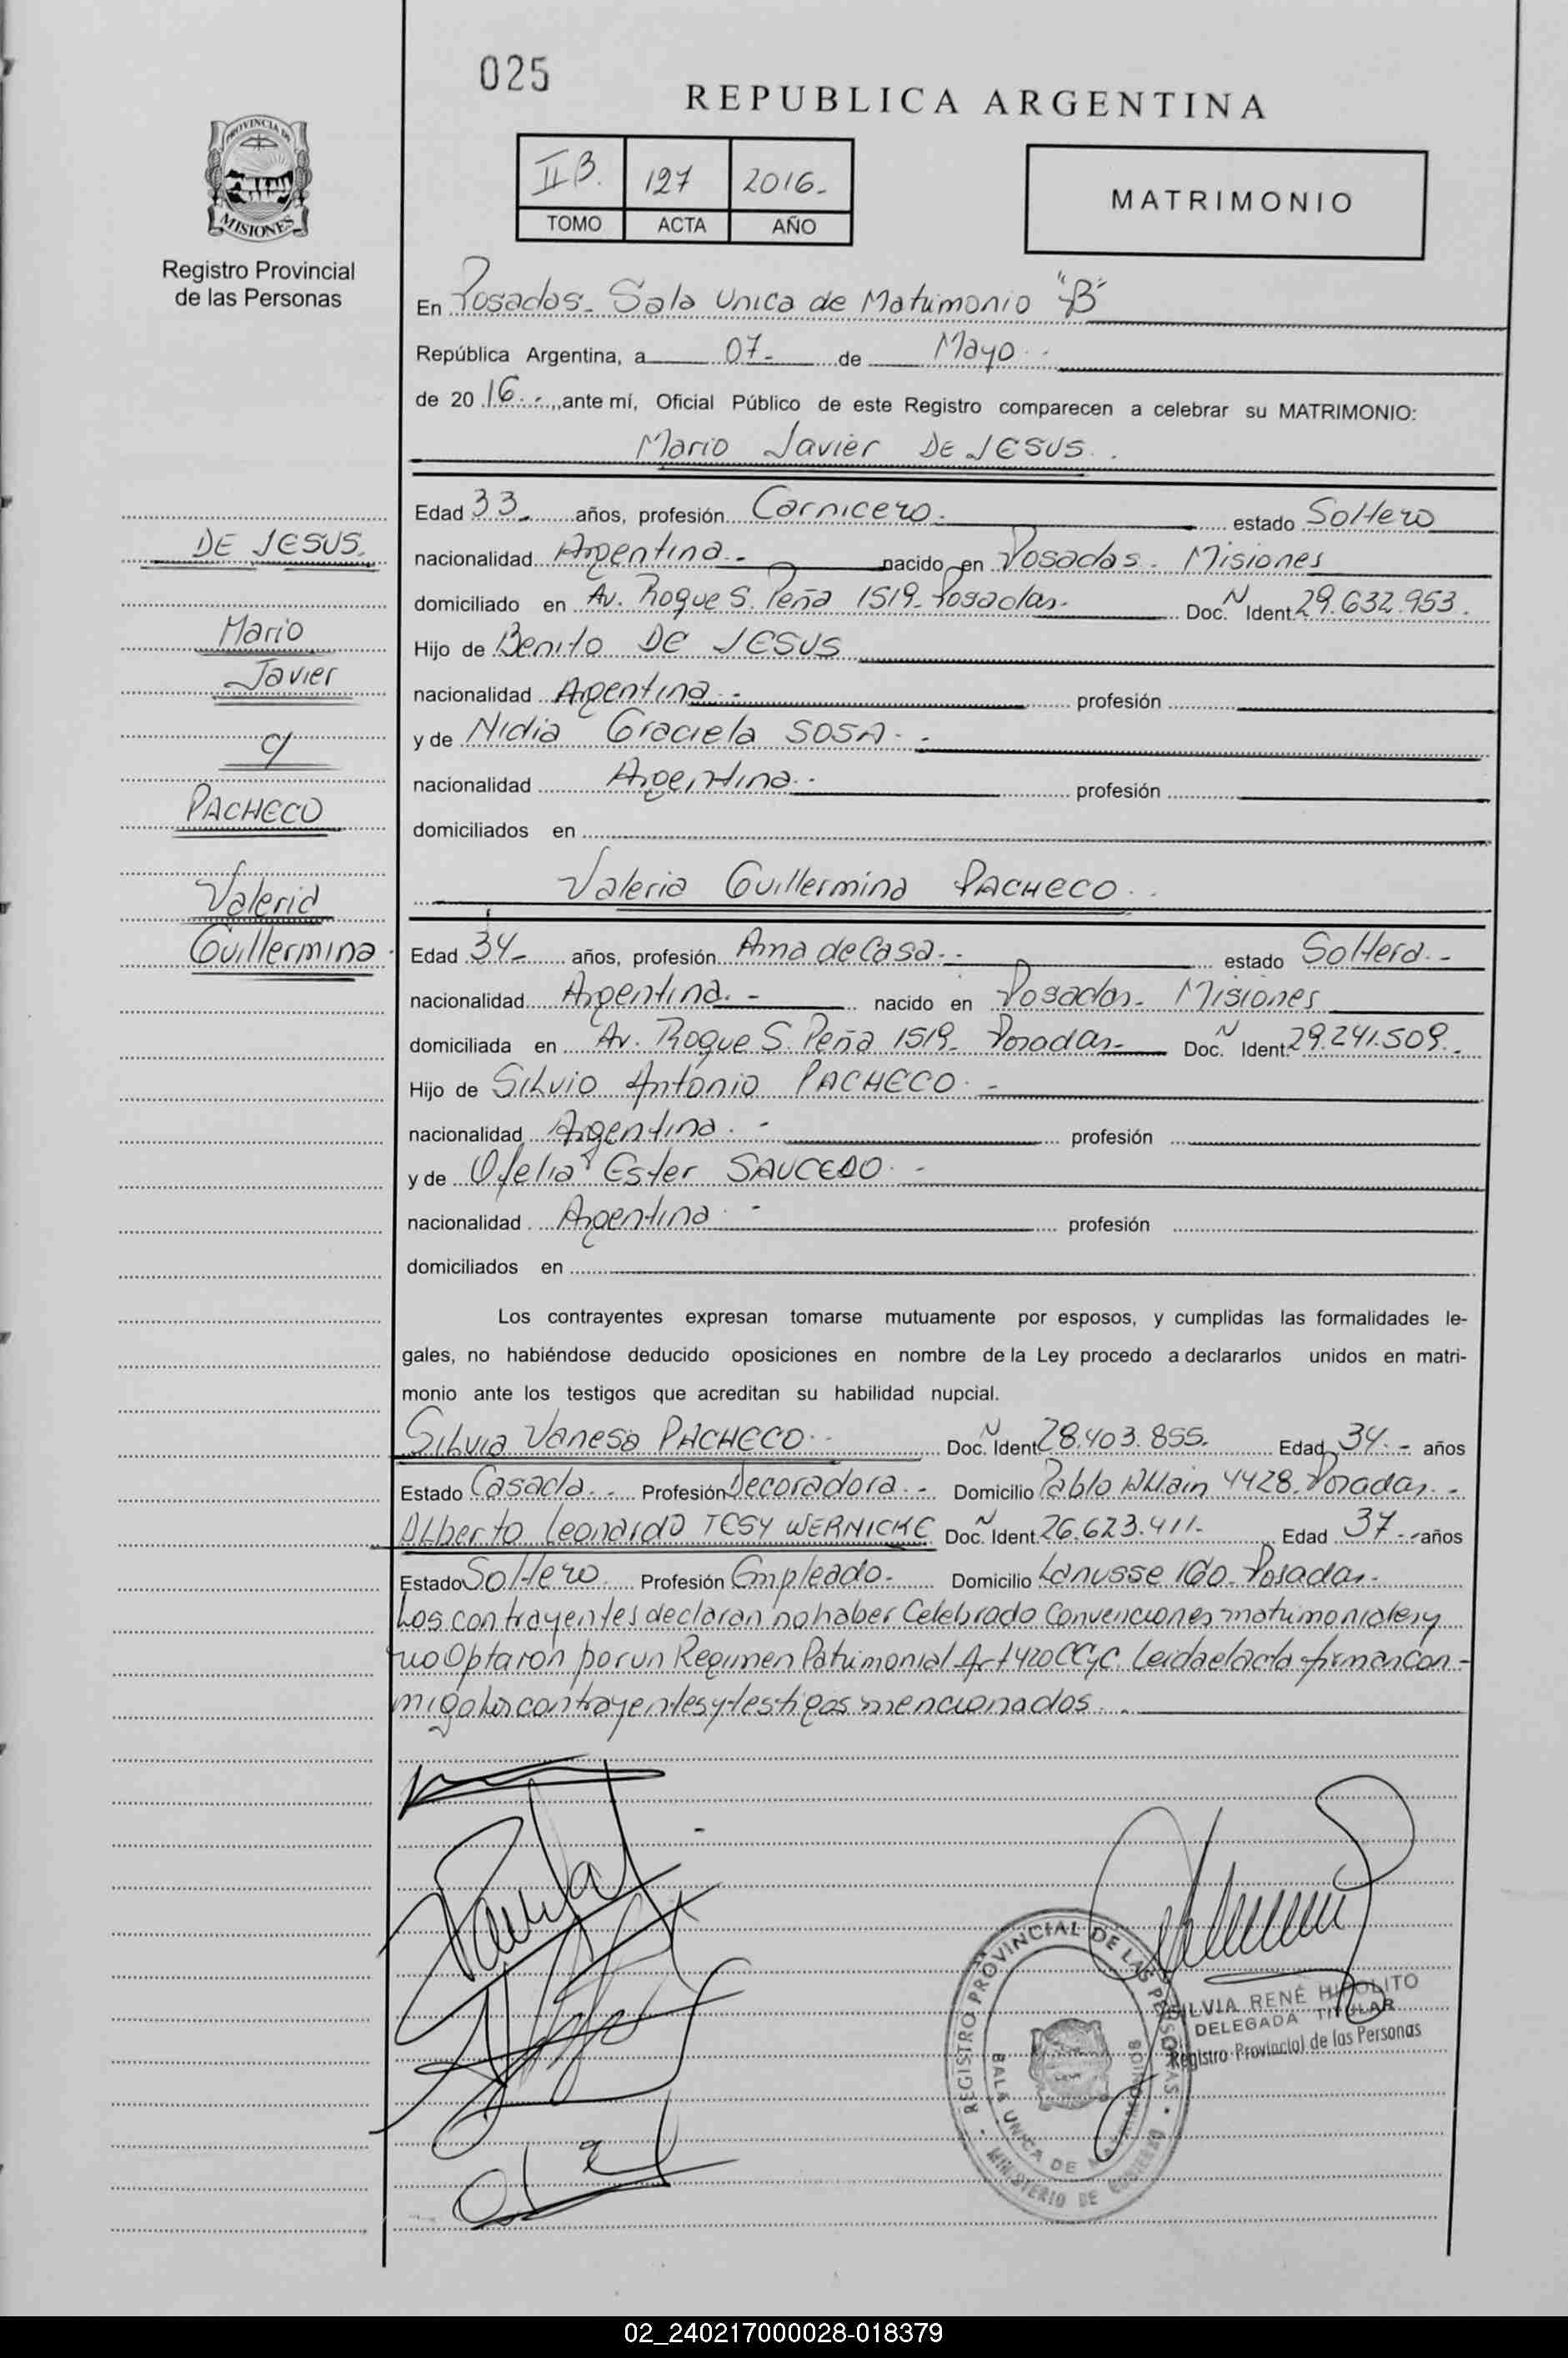 025
REPUBLICA ARGENTINA
PROVINCIA DE
MISIONES
Registro Provincial
de las Personas
II B. 127 2016.-
TOMO ACTA AÑO
MATRIMONIO
En Posadas.- Sala Unica de Matrimonio "B"
República Argentina, a 07.- de Mayo.-
de 2016.-, ante mí, Oficial Público de este Registro comparecen a celebrar su MATRIMONIO:
Mario Javier DE JESUS.-
DE JESUS.
Mario
Javier
c/
PACHECO
Valeria
Guillermina
Edad 33.- años, profesión Carnicero.- estado Soltero
nacionalidad Argentina.- nacido en Posadas - Misiones
domiciliado en Av. Roque S. Peña 1519- Posadas- Doc. N Ident. 29.632.953.
Hijo de Benito DE JESUS
nacionalidad Argentina.- profesión
y de Nidia Graciela SOSA.-
nacionalidad Argentina.- profesión
domiciliados en
Valeria Guillermina PACHECO.-
Edad 34.- años, profesión Ama de Casa.- estado Soltera.-
nacionalidad Argentina.- nacido en Posadas- Misiones
domiciliada en Av. Roque S. Peña 1519- Posadas- Doc. N Ident. 29.241.509.-
Hijo de Silvio Antonio PACHECO.-
nacionalidad Argentina.- profesión
y de Ofelia Ester SAUCEDO.-
nacionalidad Argentina.- profesión
domiciliados en
Los contrayentes expresan tomarse mutuamente por esposos, y cumplidas las formalidades le-
gales, no habiéndose deducido oposiciones en nombre de la Ley procedo a declararlos unidos en matri-
monio ante los testigos que acreditan su habilidad nupcial.
Silvia Vanesa PACHECO.- Doc. N Ident. 28.403.855. Edad 34.- años
Estado Casada.- Profesión Decoradora.- Domicilio Pablo Allain 4428- Posadas.-
Alberto Leonardo TESY WERNICKE Doc. N Ident. 26.623.411- Edad 37.- años
Estado Soltero Profesión Empleado.- Domicilio Lanusse 160- Posadas.-
Los contrayentes declaran no haber Celebrado Convenciones matrimoniales y
no Optaron por un Regimen Patrimonial Art 420 CCyC. Leida el acta firman con-
migo los contrayentes y testigos mencionados.-
REGISTRO PROVINCIAL DE LAS PERSONAS
MINISTERIO DE GOBIERNO
SALA UNICA DE MATRIMONIOS
SILVIA RENÉ HIPOLITO
DELEGADA TITULAR
Registro Provincial de las Personas
02_240217000028-018379